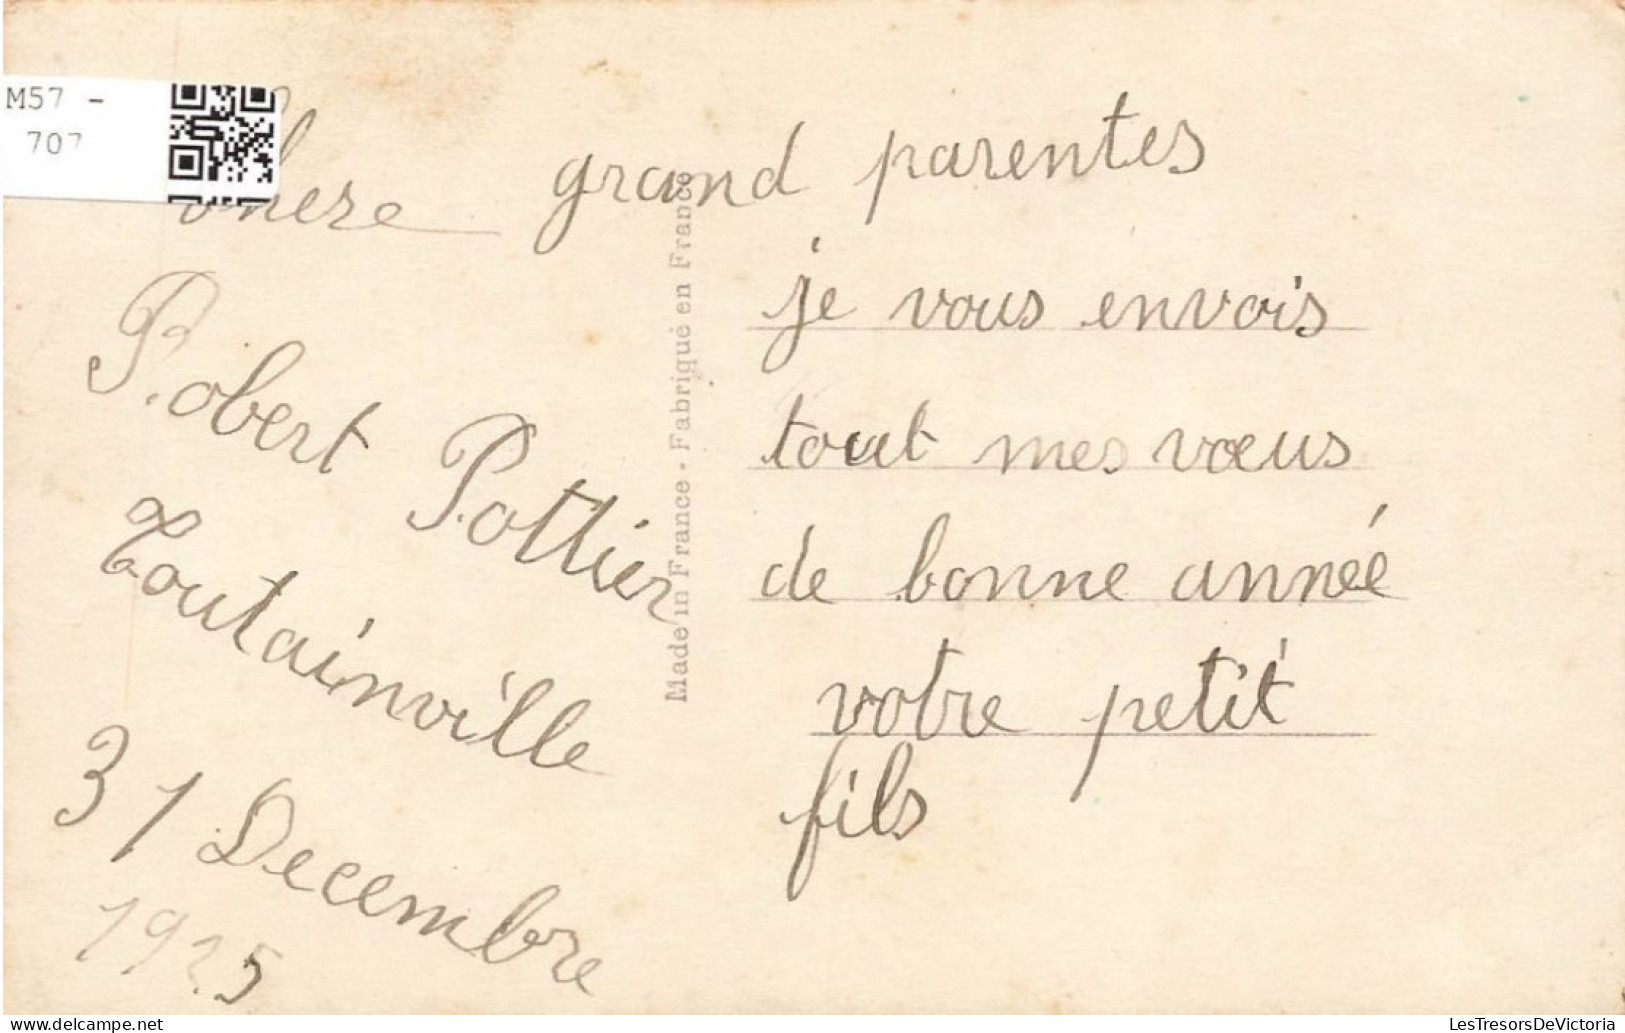 M57 -
707
Chere grand parentes
je vous envois
tout mes vœus
de bonne année
votre petit
fils
Robert Pottier
Toutainville
31 Decembre
1925
Made in France - Fabriqué en France
LesTresorsDeVictoria
delcampe.net
LesTresorsDeVictoria